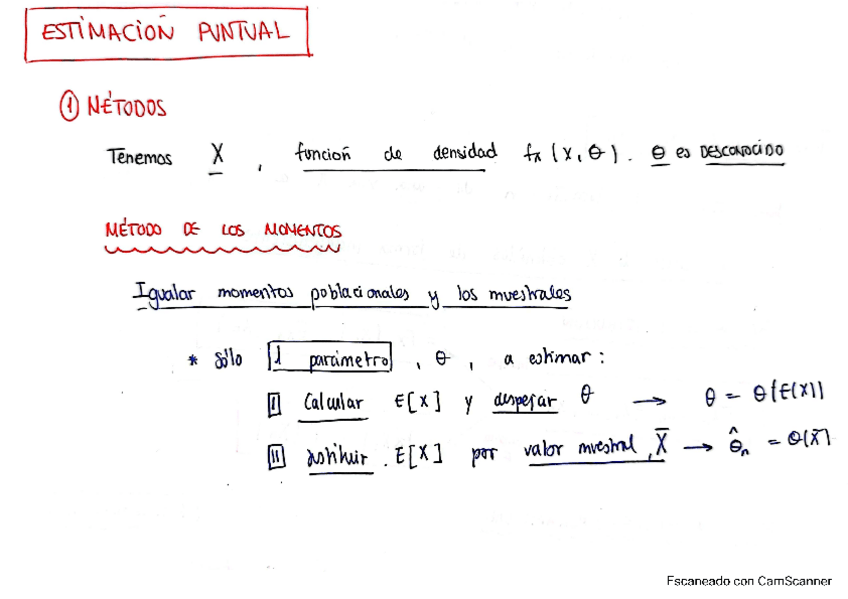 ESTIMACIÓN PUNTUAL
① MÉTODOS
Tenemos X , función de densidad fx (x, θ). θ es DESCONOCIDO
MÉTODO DE LOS MOMENTOS
Igualar momentos poblacionales y los muestrales
* Sólo 1 parámetro , θ , a estimar :
I Calcular E[X] y despejar θ → θ = θ(E(X))
II sustituir . E[X] por valor muestral , X̄ → θ̂n = θ(X̄)
Escaneado con CamScanner